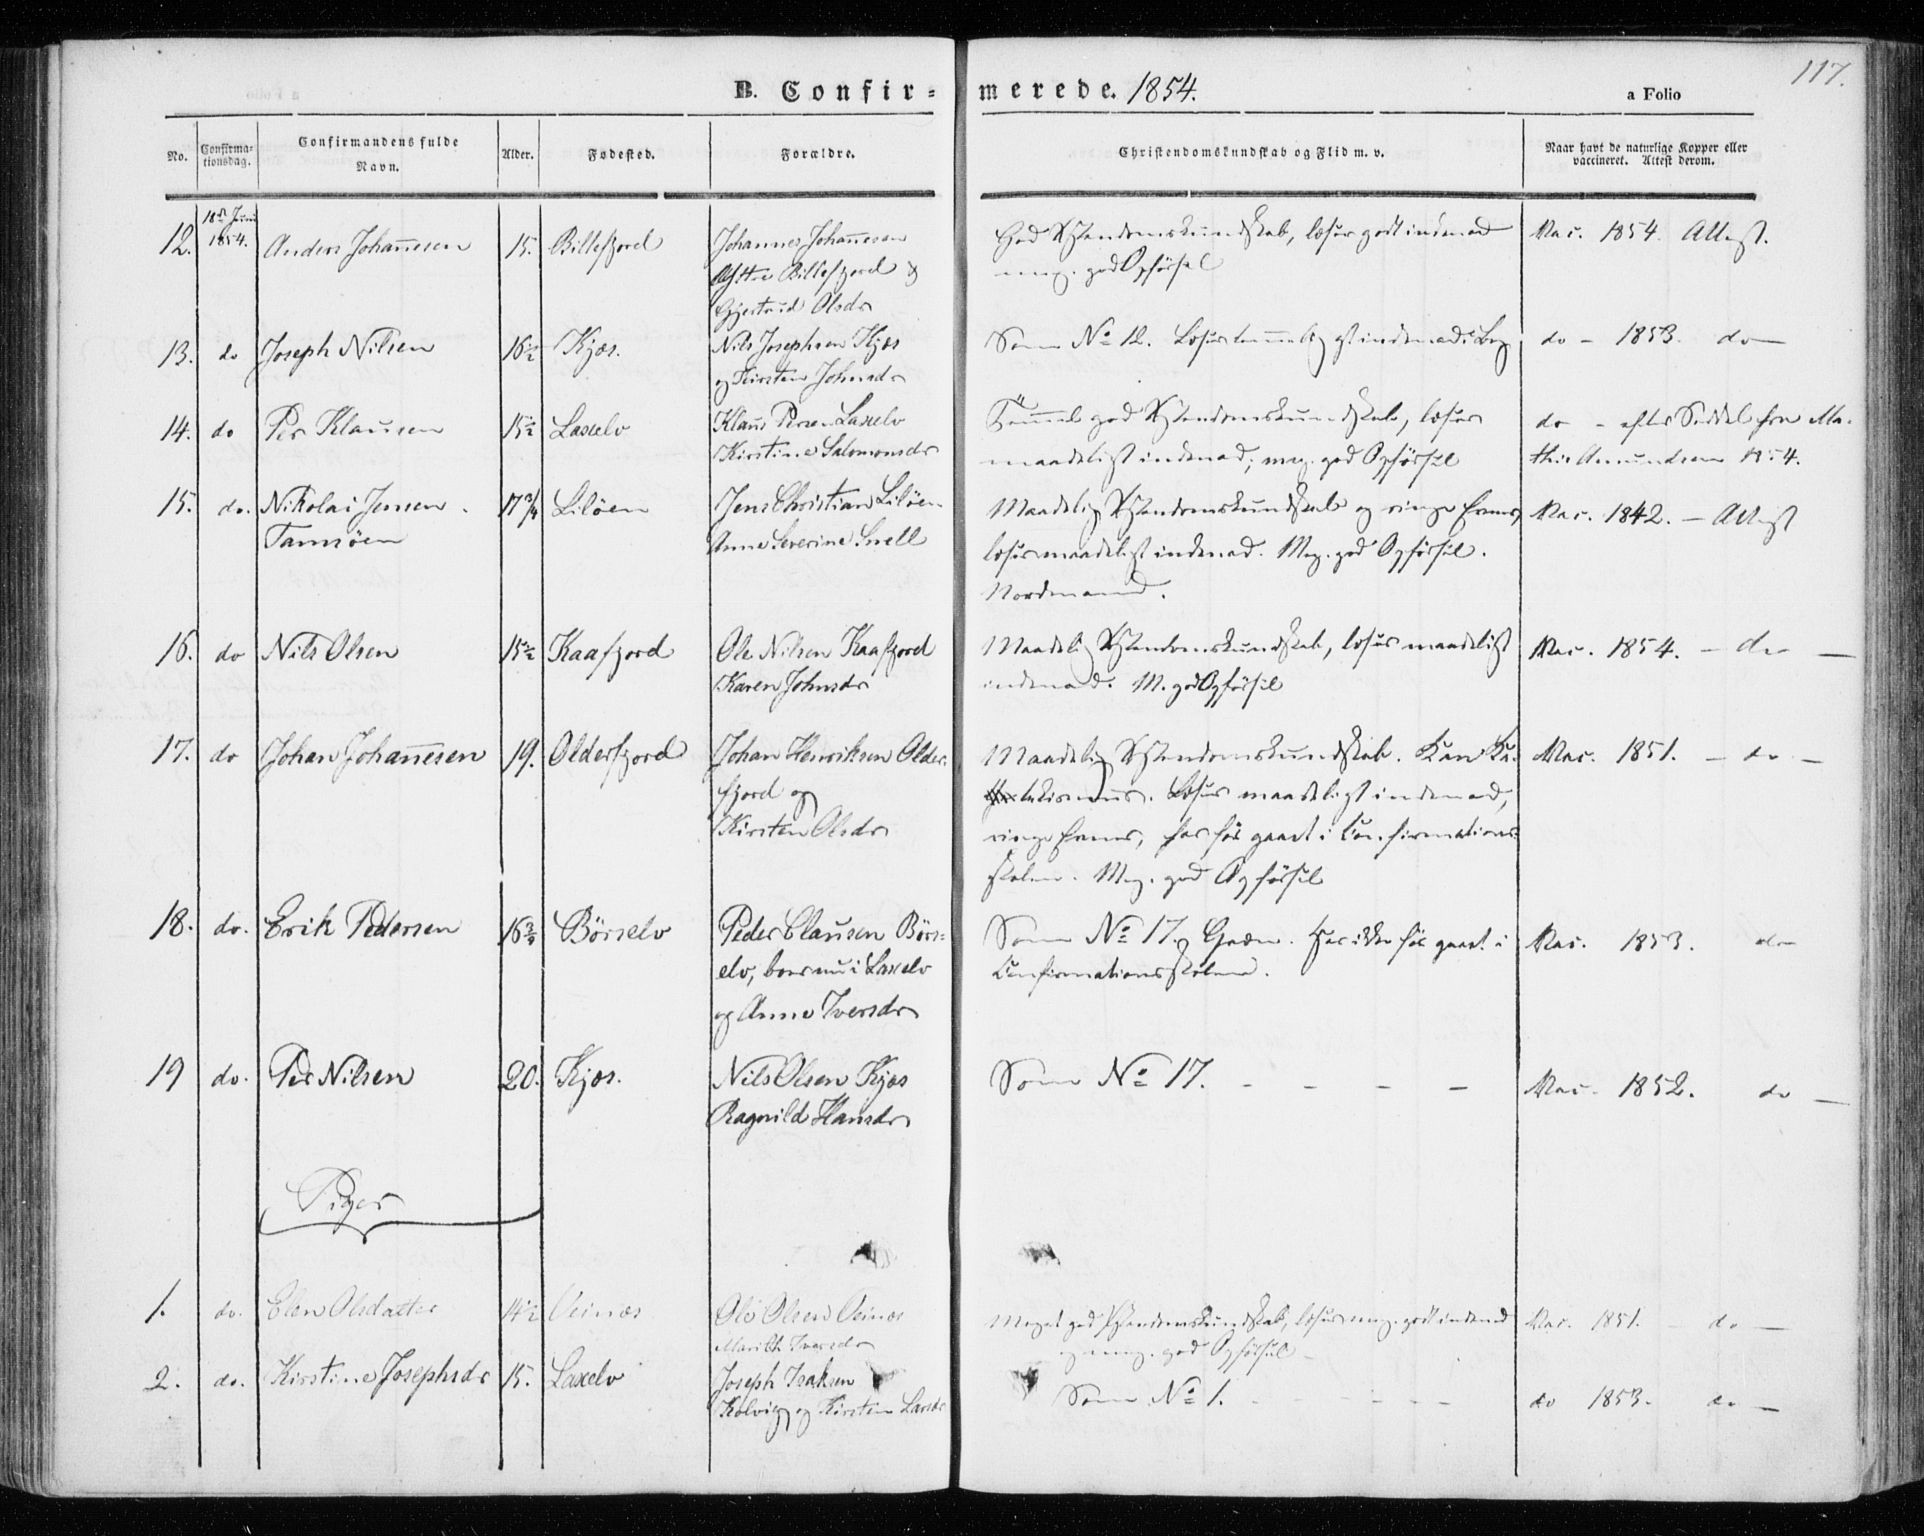 117.
B. Confir-merede. 1854.
a Folio
No. Confirma-tionsdag. Confirmandens fulde Navn. Alder. Fødested. Forældre. Christendomskundskab og Flid m. v. Naar havt de naturlige Kopper eller vaccineret. Attest derom.
12. 18de Juni 1854. Anders Johannesen 15. Billefjord Johannes Johannesen
Billefjord &
Gjertrud Olsdr
God Xstendomskundskab, læser godt indenad
meg. god Opførsel
Vac. 1854. Attest.
13. do Joseph Nilsen 16½ Kjæs. Nils Josephsen Kjæs
og Kirsten Johnsdr
Som No 12. Læser indenad i Bog
do - 1853. do
14. do Per Klausen 15½ Laxelv Klaus Persen Laxelv
Kirstine Salomonsdr
Temmel. god Xstendomskundskab, læser
maadeligt indenad, meg. god Opførsel
do - efter Seddel fra Ma-
this Amundsen
15. do. Nikolai Jensen
Tamsöen
17¾ Lilöen Jens Christian Lilöen
Anne Severine Snell
Maadelig Xstendomskundskab og ringe Evner,
læser maadeligt indenad. Meg. god Opførsel.
Nordmand.
Vac. 1842. - Attest
16. do Nils Olsen 15½ Kaafjord Ole Nilsen Kaafjord
Karen Johnsdr
Maadelig Xstendomskundskab, læser maadeligt
indenad. M. god Opførsel
Vac. 1854. - do -
17. do Johan Johannesen 19. Olderfjord Johan Henriksen Older-
fjord og
Kirsten Olsdr
Maadelig Xstendomskundskab. Kan Ka-
tekismus. Læser maadeligt indenad,
ringe Evner, har før gaaet i Confirmations-
skolen. Meg. god Opførsel
Vac. 1851. - do -
18. do. Erik Pedersen 16¾ Börselv Peder Clausen Börs-
elv, boer nu i Laxelv
og Anne Iversdr
Som No 17. Har ikke før gaaet i
Confirmationsskolen.
Vac. 1853. do
19 do. Per Nilsen 20. Kjæs. Nils Olsen Kjæs
Ragnild Hansdr
Som No 17. - - - -
Vac. 1852. do -
Piger
1. do. Elen Olsdatter 14½ Veinæs Ole Olsen Veinæs
Marith Iversdr
Meget god Xstendomskundskab, læser meg. godt indenad
og meg. god Opførsel
Vac. 1851. - do -
2. do. Kirstine Josephsdr 15. Laxelv Joseph Isaksen
Kolvig og Kirsten Larsdr
Som No 1. - - - -
do 1853. do -